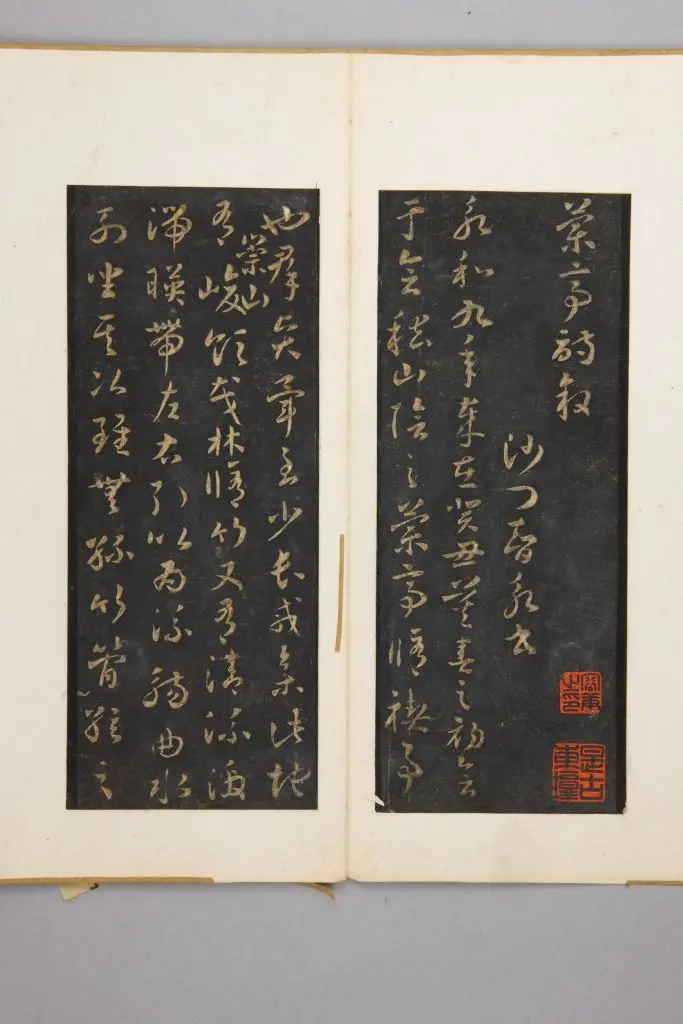 蘭亭詩叙
沙門智永書
永和九年歲在癸丑暮春之初會
于會稽山陰之蘭亭脩禊事
也群賢畢至少長咸集此地
有崇山峻領茂林脩竹又有清流激
湍暎帶左右引以為流觴曲水
列坐其次雖無絲竹管絃之